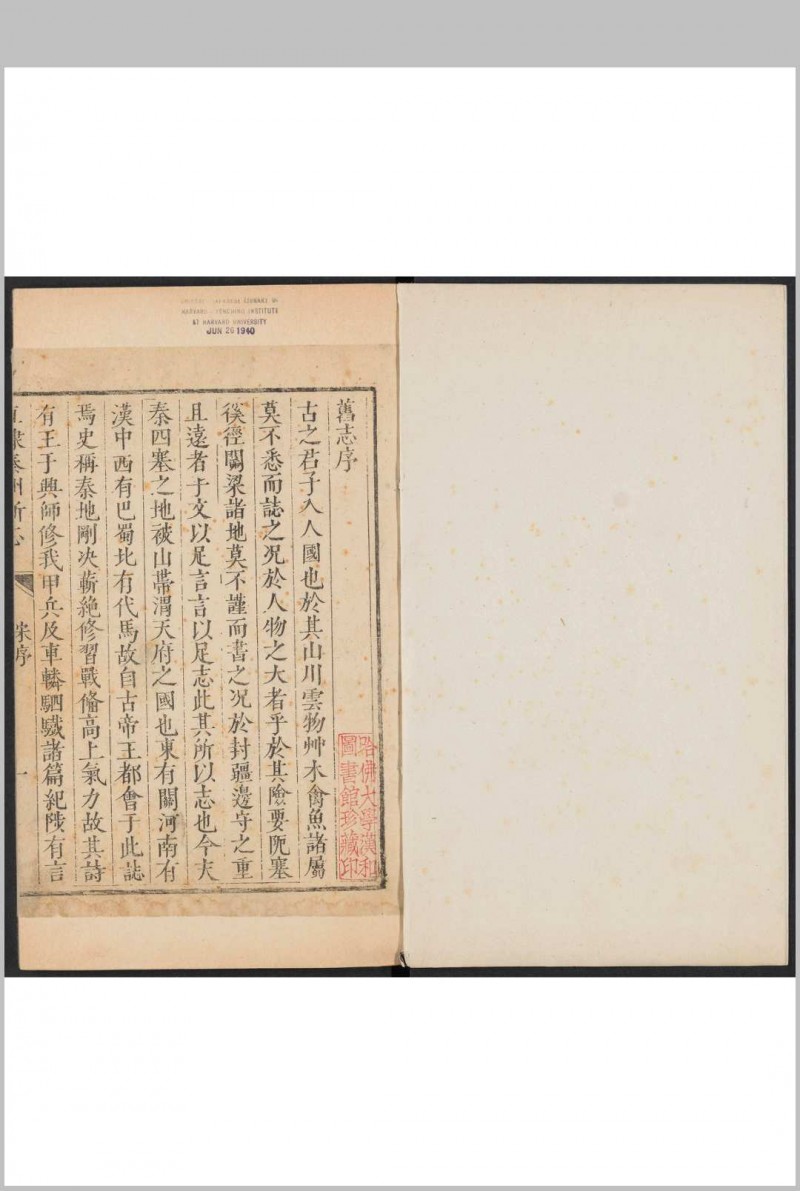 舊志序
古之君子入人國也於其山川雲物艸木禽魚諸屬
莫不悉而誌之况於人物之大者乎於其險要阨塞
徯徑關梁諸地莫不謹而書之况於封疆邊守之重
且遠者于文以足言言以足志此其所以志也今夫
秦四塞之地被山帶渭天府之國也東有關河南有
漢中西有巴蜀北有代馬故自古帝王都會于此誌
焉史稱秦地剛决蘄絶修習戰備高上氣力故其詩
有王于興師修我甲兵及車轔駟驖諸篇紀陵有言
直隸秦州新志
序
一
哈佛大學漢和
圖書館珍藏印
LIBRARY OF
HARVARD YENCHING INSTITUTE
AT HARVARD UNIVERSITY
JUN 26 1940